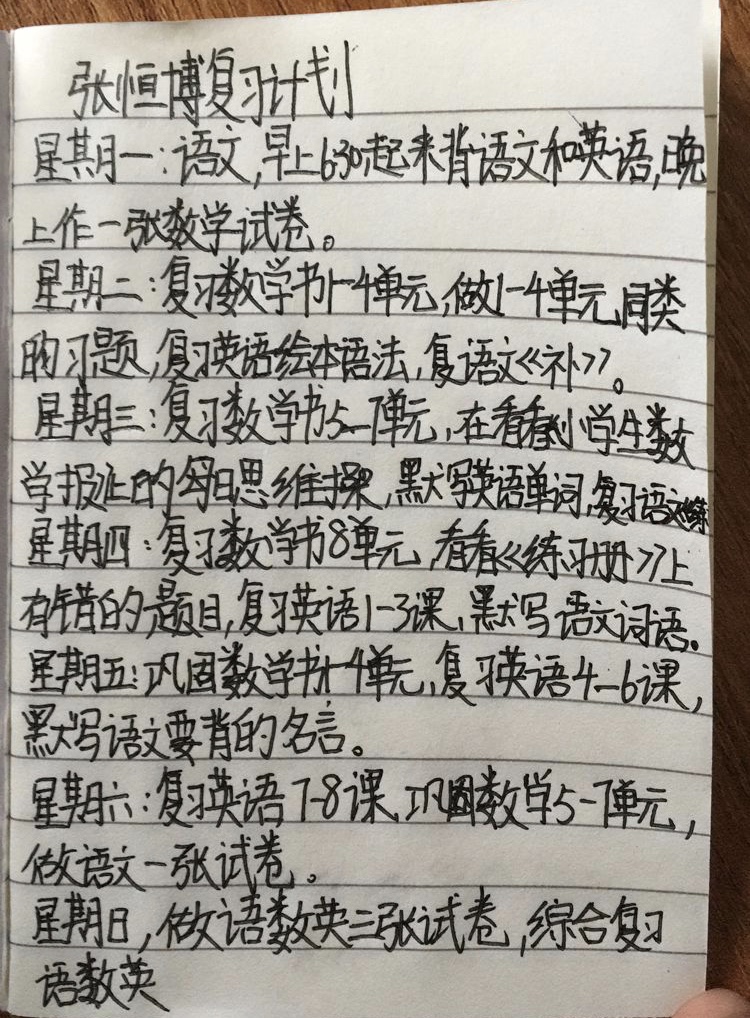 张恒博复习计划
星期一:语文,早上630起来背语文和英语,晚
上作一张数学试卷。
星期二:复习数学书1-4单元,做1-4单元同类
的习题,复习英语绘本语法,复语文《补》。
星期三:复习数学书5-7单元,在看看小学生数
学报上的每日思维操,默写英语单词,复习语文
星期四:复习数学书8单元,看看《练习册》上
有错的题目,复习英语1-3课,默写语文词语。
星期五:巩固数学书1-4单元,复习英语4-6课,
默写语文要背的名言。
星期六:复习英语7-8课,巩固数学5-7单元,
做语文一张试卷。
星期日,做语数英三张试卷,综合复习
语数英